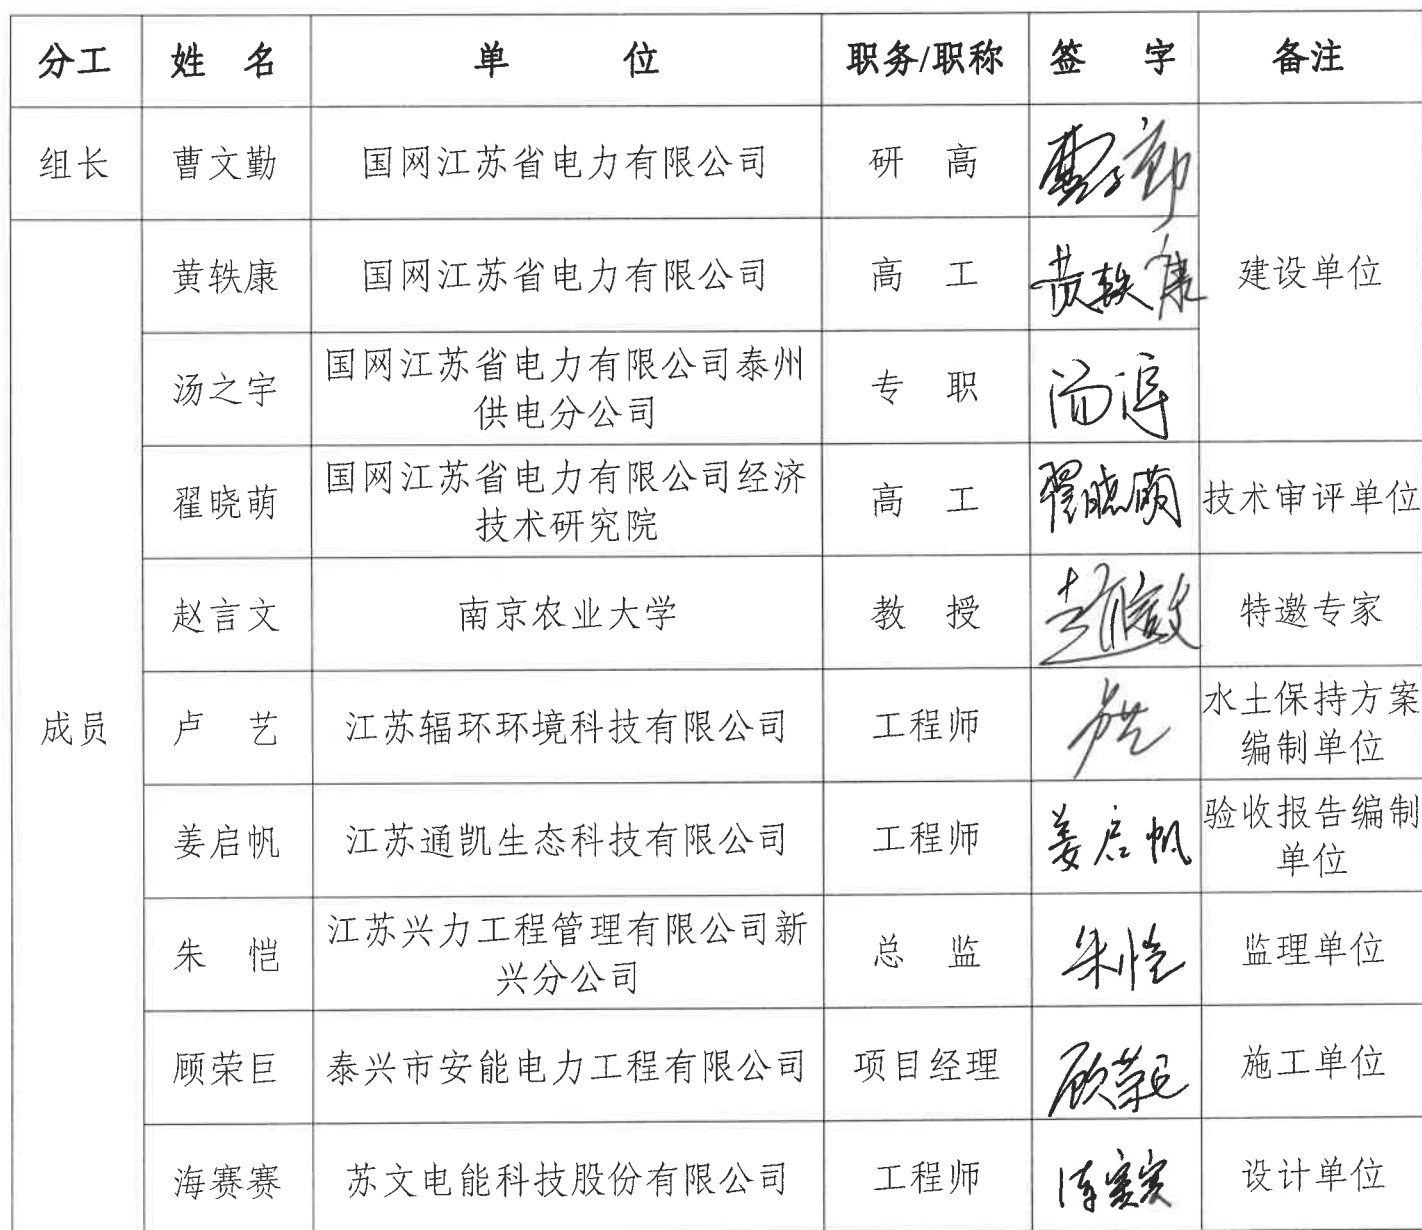 分工 姓 名 单 位 职务/职称 签 字 备注
组长 曹文勤 国网江苏省电力有限公司 研 高 曹文勤
黄轶康 国网江苏省电力有限公司 高 工 黄轶康 建设单位
汤之宇 国网江苏省电力有限公司泰州
供电分公司 专 职 汤之宇
翟晓萌 国网江苏省电力有限公司经济
技术研究院 高 工 翟晓萌 技术审评单位
赵言文 南京农业大学 教 授 特邀专家
成员 卢 艺 江苏辐环环境科技有限公司 工程师 水土保持方案
编制单位
姜启帆 江苏通凯生态科技有限公司 工程师 姜启帆 验收报告编制
单位
朱 恺 江苏兴力工程管理有限公司新
兴分公司 总 监 朱恺 监理单位
顾荣巨 泰兴市安能电力工程有限公司 项目经理 顾荣巨 施工单位
海赛赛 苏文电能科技股份有限公司 工程师 海赛赛 设计单位